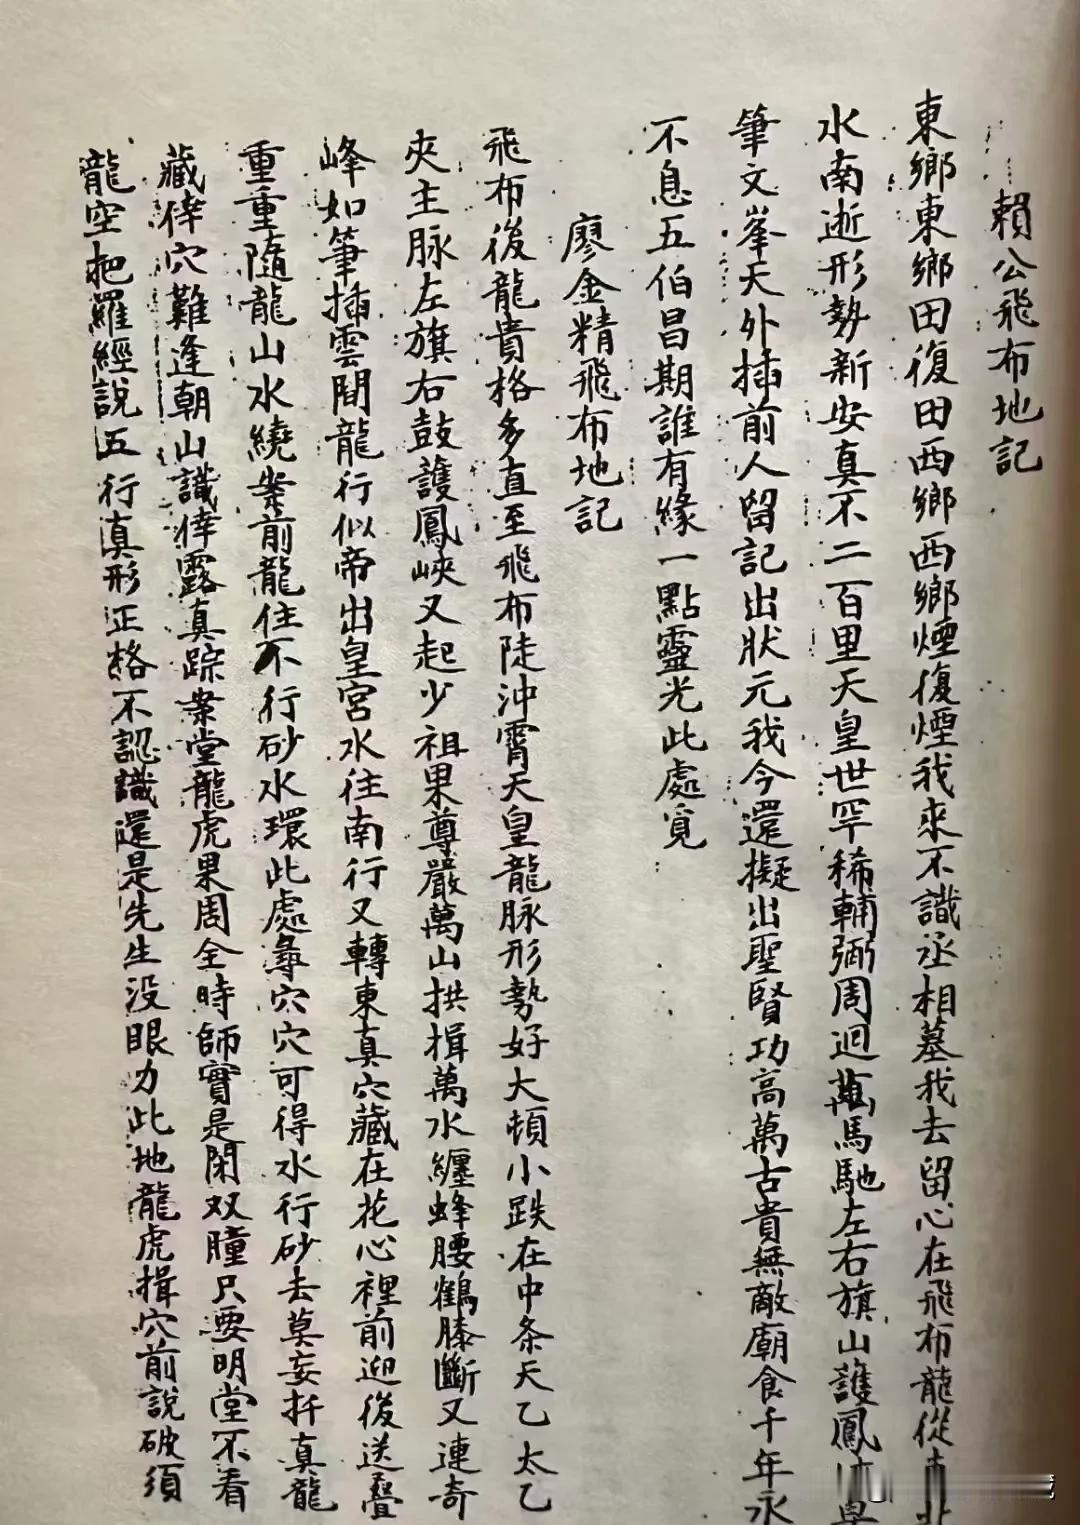 賴公飛布地記
東鄉東鄉田復田西鄉西鄉煙復煙我來不識丞相墓我去留心在飛布龍從
水南逝形勢新安真不二百里天皇世罕稀輔弼周迴萬馬馳左右旗山護鳳
筆文峯天外插前人留記出狀元我今還擬出聖賢功高萬古貴無敵廟食千年永
不息五伯昌期誰有緣一點靈光此處覓
廖金精飛布地記
飛布後龍貴格多直至飛布陡沖霄天皇龍脉形勢好大頓小跌在中条天乙太乙
夾主脉左旗右鼓護鳳峽又起少祖果尊嚴萬山拱揖萬水纏蜂腰鶴膝斷又連奇
峰如筆插雲間龍行似帝出皇宮水往南行又轉東真穴藏在花心裡前迎後送疊
重重隨龍山水繞案前龍住不行砂水環此處尋穴穴可得水行砂去莫妄扦真龍
藏倖穴難逢朝山識倖露真踪案堂龍虎果周全時師實是閉双瞳只要明堂不看
龍空把羅經說五行真形正格不認識還是先生没眼力此地龍虎揖穴前說破須